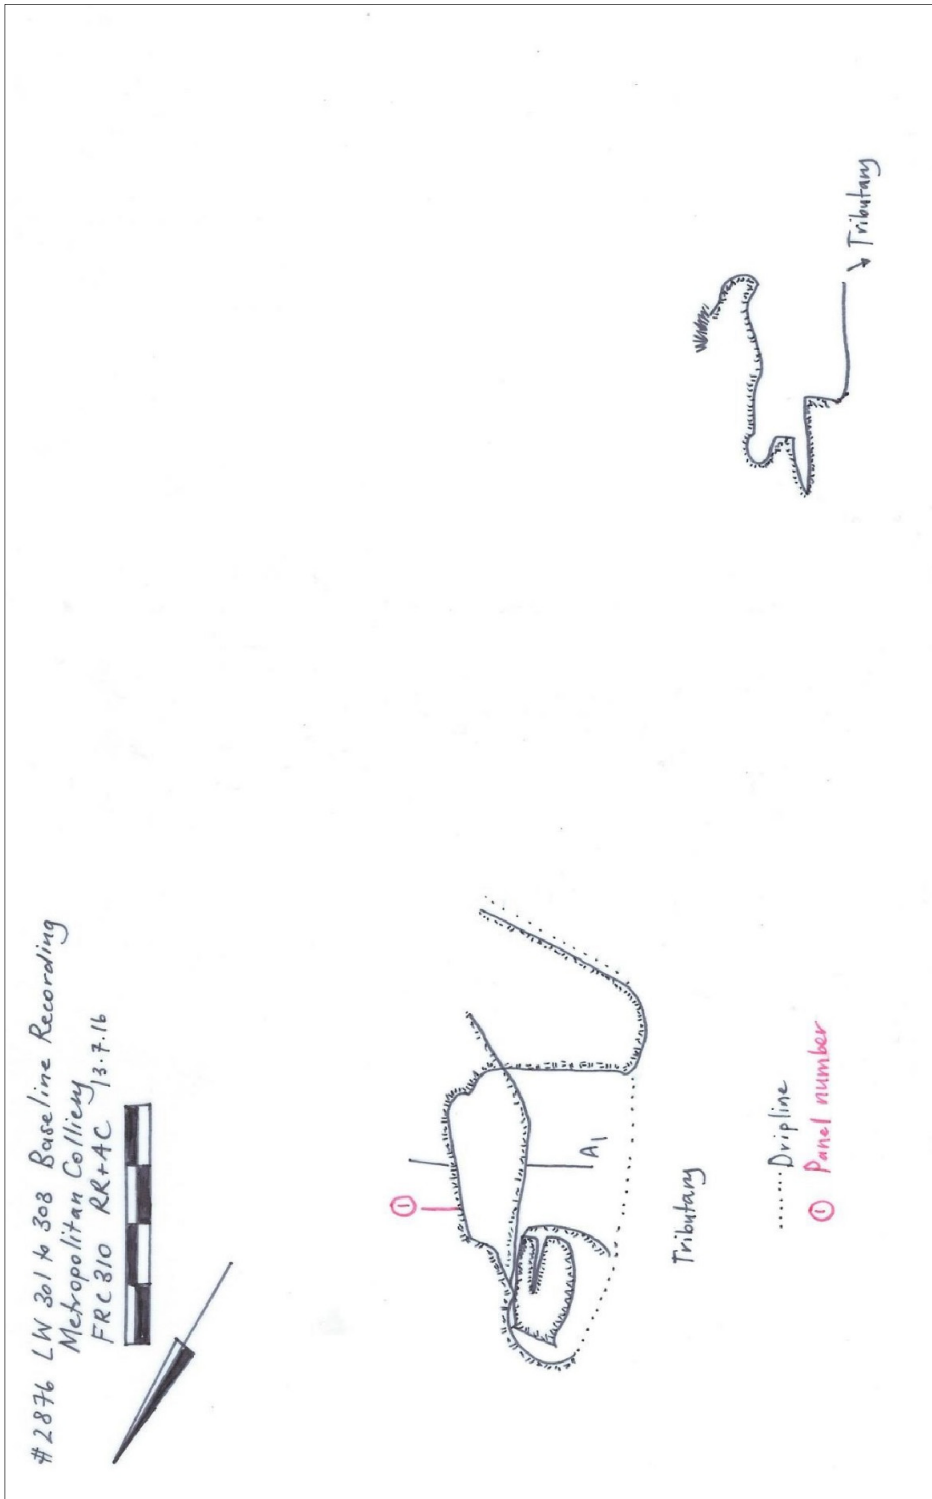 #2876 LW 301 to 308 Baseline Recording
Metropolitan Colliery
FRC 310 RR+AC 13.7.16
①
A1
Tributary
Tributary
...... Dripline
① Panel number